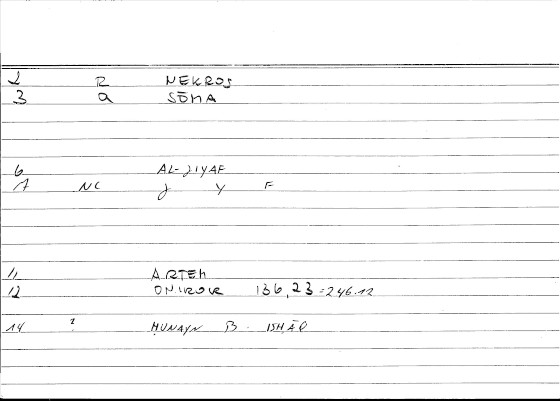 2 R NEKROS
3 a SŌMA
6 AL-JIYAF
7 NC J Y F
11 ARTEM
12 ONIROCR 136,23=246.12
14 ? ḤUNAYN B. ISḤĀQ